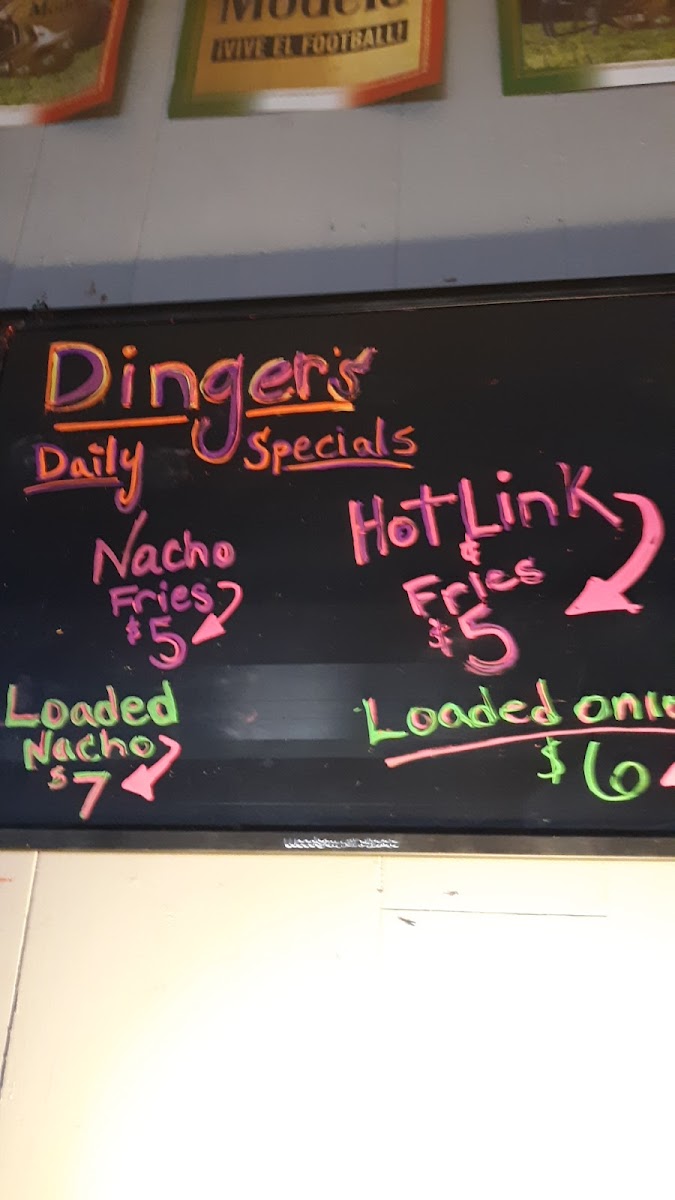 Modelo
¡VIVE EL FOOTBALL!
Dinger's
Daily Specials
Nacho
Fries
$5
Hot Link
&
Fries
$5
Loaded
Nacho
$7
Loaded onio
$6